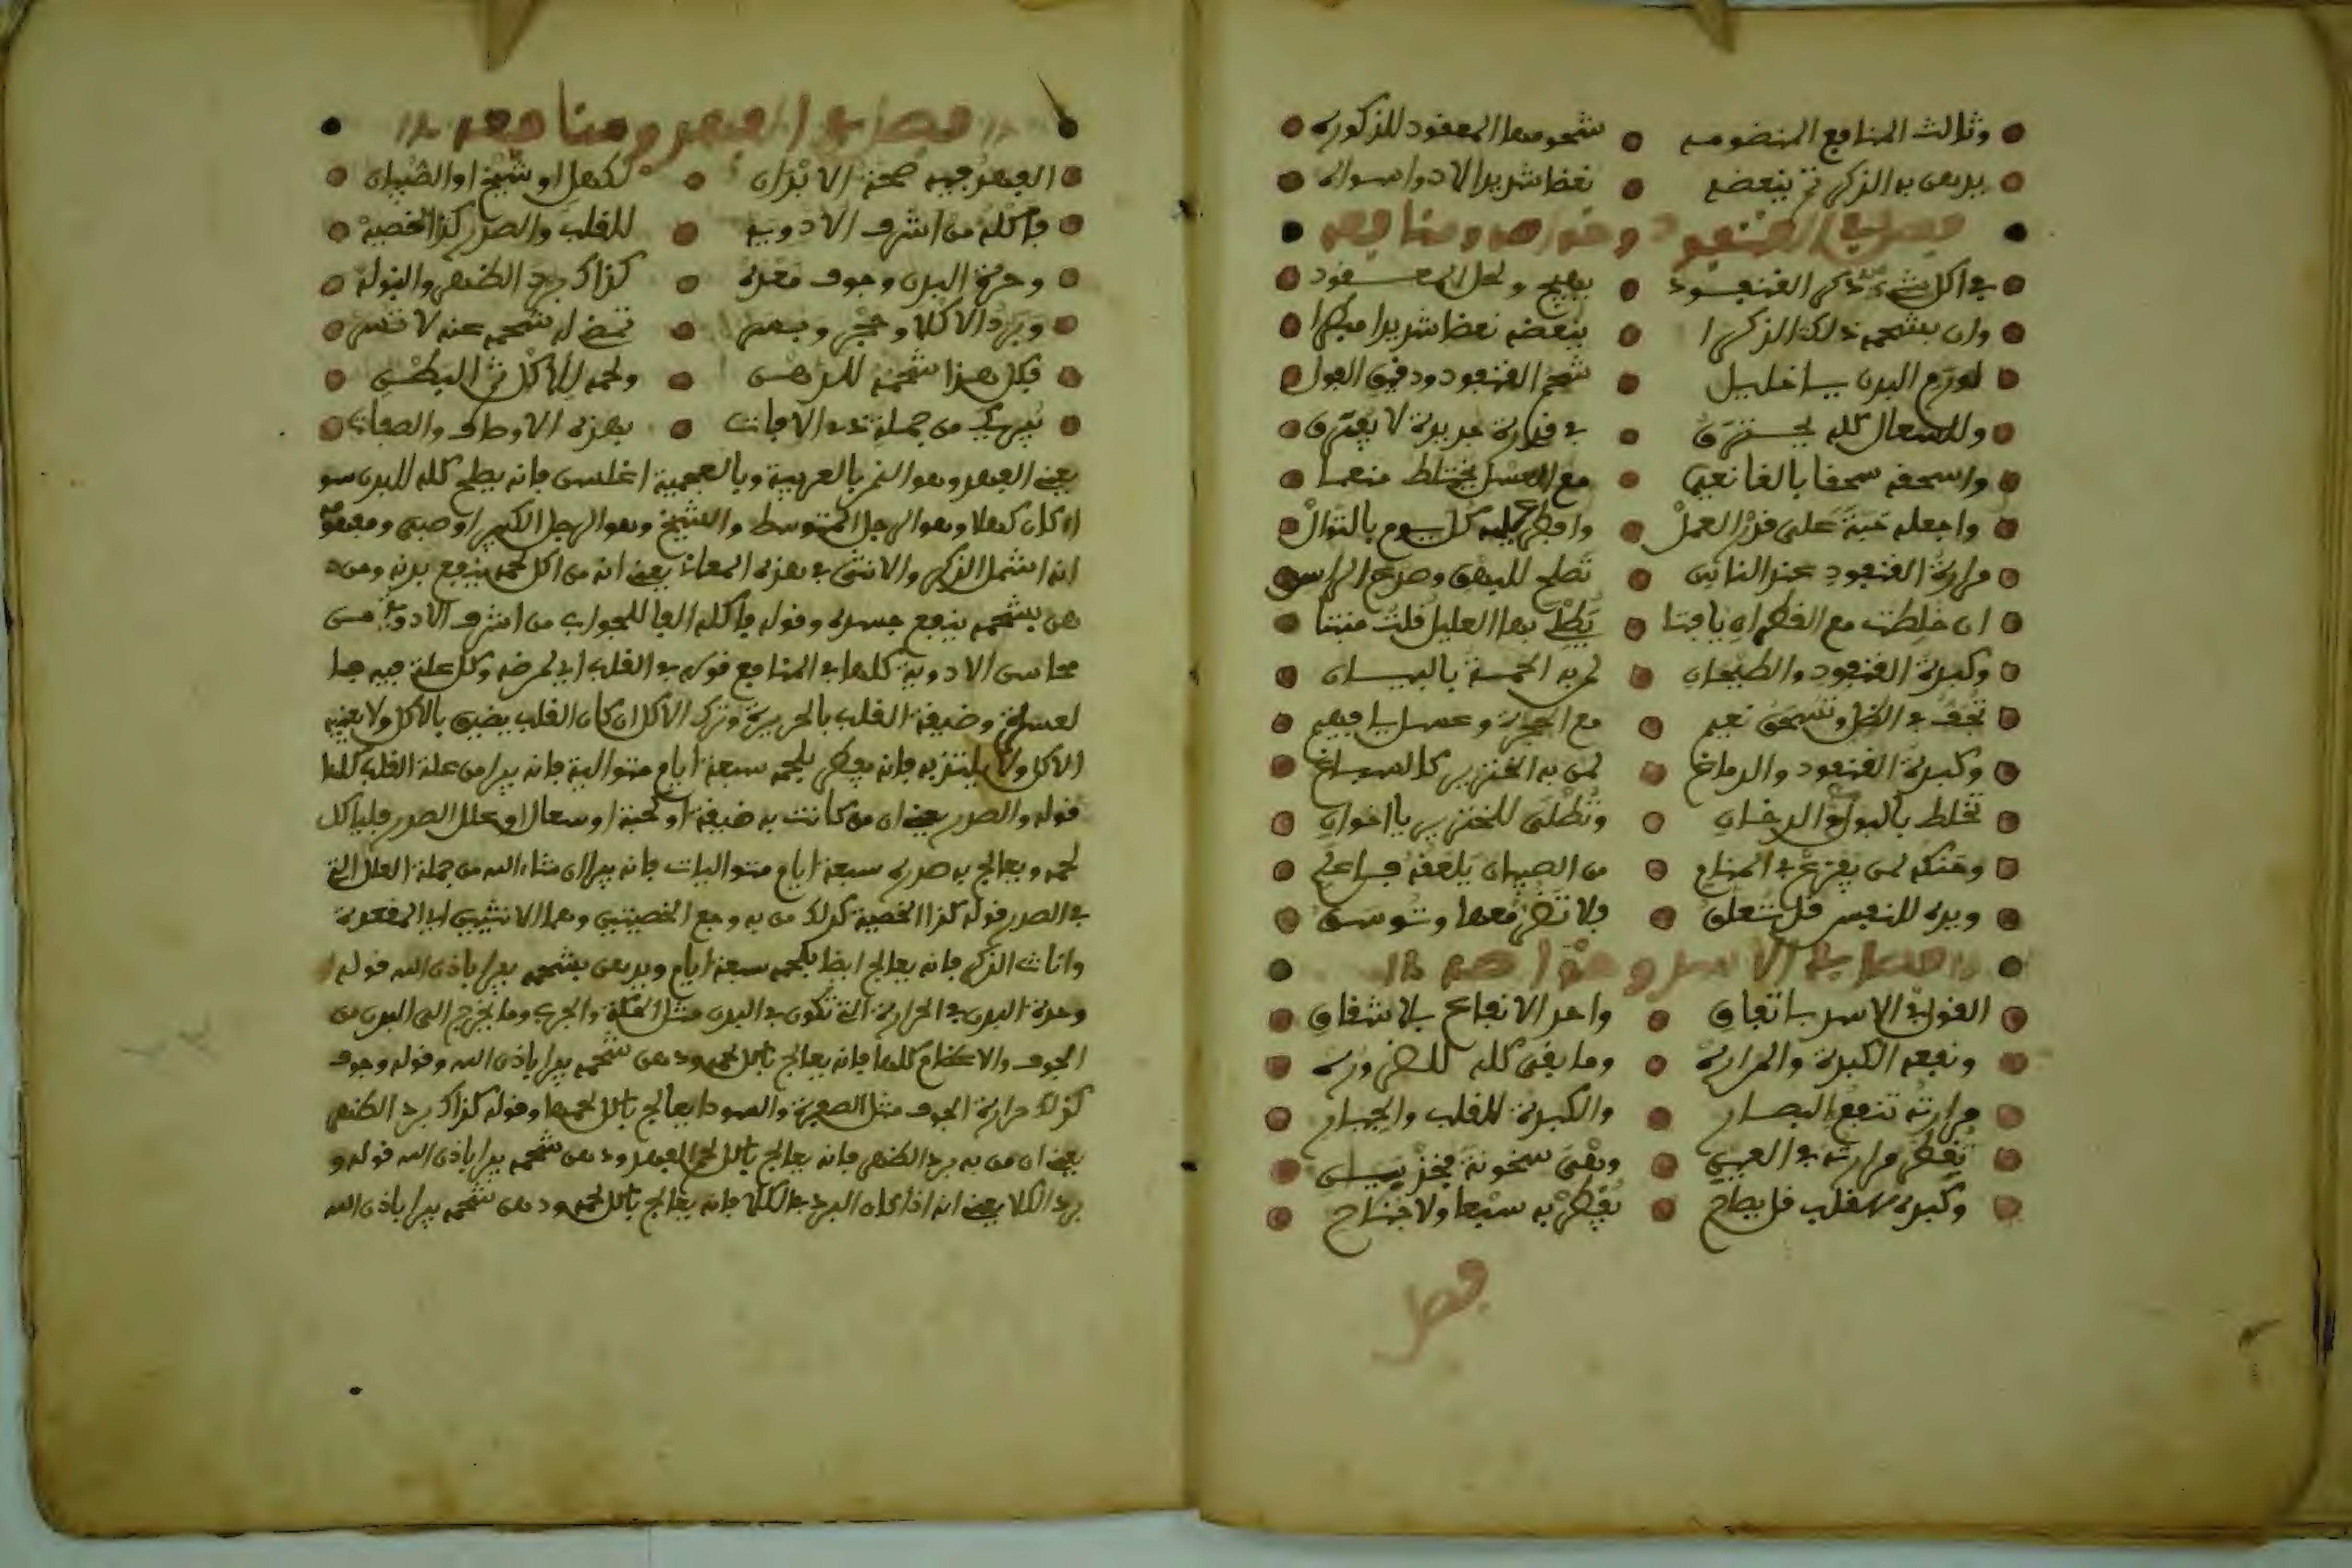 وثالث المنافع المنضومه شحومها المعقود للذكوره
يدهن به الذكر ثم ينعضه نعضا شديدا لا دوا سواه
فصل في القنفود وخواصه ومنافعه
في اكل شحم ذكر القنفود يهيج ولحل المعقود
وان بشحمه دلكت الذكرا ينعضه نعضا شديدا ميكرا
لورم البدن يا خليل شحم القنفود ودقيق الفول
وللسعال كله يحترق في فخارة جديدة لا يفترق
واسحقه سحقا بالغا نعم مع العسل يختلط منهما
واجعله حبة على قدر العمل وافطر عليه كل يوم بالتوال
مرارة القنفود عند الناس تصلح للبهق وصدع الراس
ان خلطت مع القطران يا فتا يطلى بها العليل قلت منبتا
وكبدة القنفود والطيحان لمن به الحمة بالبيان
تجفف في الظل وتسحق نعم مع الحجرة وعسل يا فهيم
وكبدة القنفود والدماغ لمن به الخنزير كالسباغ
تخلط بالبول والدخان وتطلى للخنزير يا اخوان
وحنكه لمن يفزع في المنام من الصبيان يلعقه فاعلم
ويده للنفس قل تتعلق فلا تضر معها وتوسق
فصل في الاسد وخواصه
القول في الاسد باتفاق واحد الانفاع بلا شقاق
ونفعه الكبدة والمرارة وما بقى كله للضرورة
مرارته تنفع للبصار والكبدة للقلب والجبار
تقطر مرارته في العين وبقى سخونة فخذ بيان
وكبده للقلب قل يصلح يفطر به سبعا ولا جناح
فصل
فصل في الفهد ومنافعه
الفهد فيه صحة الابدان لكهل او شيخ او الصبيان
فاكله من اشرف الادويه للقلب والصدر كذا الخصية
وحرة البدن وجوف معدة كذاك برد الظهر والبولة
وبرد الاكلا وحجر وبهم تحضر له شحمه عنه لا تنم
فكل هذا شحمه للدهن ولحمه للاكل ثم البطن
يبريك من جملة ذي الافات بهذه الاوصاف والصفات
يعني الفهد وهو النمر بالعربية وبالعجمية اغلس فانه يصلح كله للبدن سو
اء كان كهلا وهو الرجل المتوسط والشيخ وهو الرجل الكبير او صبي ومفهومه
انه اشمل الذكر والانثى في هذه المعان يعني انه من اكل لحمه ينفع بدنه ومن د
هن بشحمه ينفع جسده وقوله فاكله الفا للجواب من اشرف الادوية من
محاسن الادوية كلها في المنافع قوله في القلب اي لمرضه وكل علة فيه حيا
لعسلة وضيقة القلب بالحريرة وترك الاكل ان كان القلب يضيق بالاكل ولا يعنيه
الاكل ولا يلتذ به فانه يفطر بلحمه سبعة ايام متوالية فانه يبرا من علة القلب كلها
قوله والصدر يعني ان من كانت به ضيقة او كحبة او سعال او علل الصدر فلياكل
لحمه ويعالج به صدره سبعة ايام متواليات فانه يبرا ان شاء الله من جملة العلل التي
في الصدر قوله كذا الخصية كذلك من به وجع الخصيتين وهما الانثيين اي المقعدة
واناث الذكر فانه يعالج ايضا بلحمه سبعة ايام ويدهن بشحمه يبرا باذن الله قوله
وحرة البدن في الحرارة التي تكون في البدن مثل الحكة والجرب وما يخرج الى البدن من
الجوف والاعضام كلها فانه يعالج باكل لحمه ودهن شحمه يبرا باذن الله وقوله وجوف
كذلك حرارة الجوف مثل الصفرة والسودا يعالج باكل لحمها وقوله كذاك برد الظهر
يعني ان من به برد الظهر فانه يعالج باكل لحم الفهد ودهن شحمه يبرا باذن الله قوله و
برد الكلا يعني انه اذا كان البرد في الكلا فانه يعالج باكل لحمه ودهن شحمه يبرا باذن الله